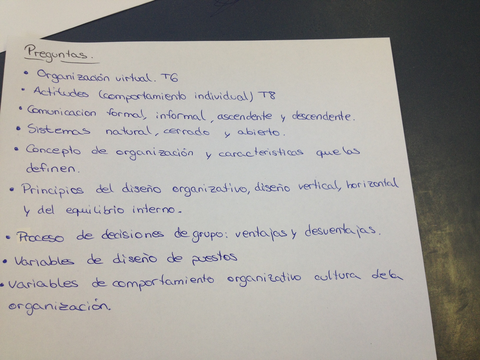 Preguntas.
• Organización virtual. T6
• Actitudes (comportamiento individual) T8
• Comunicacion formal, informal, ascendente y descendente.
• Sistemas natural, cerrado y abierto.
• Concepto de organización y caracteristicas que las
definen.
• Principios del diseño organizativo, diseño vertical, horizontal
y del equilibrio interno.
• Proceso de decisiones de grupo: ventajas y desventajas.
• Variables de diseño de puestos
• variables de comportamiento organizativo cultura de la
organización.